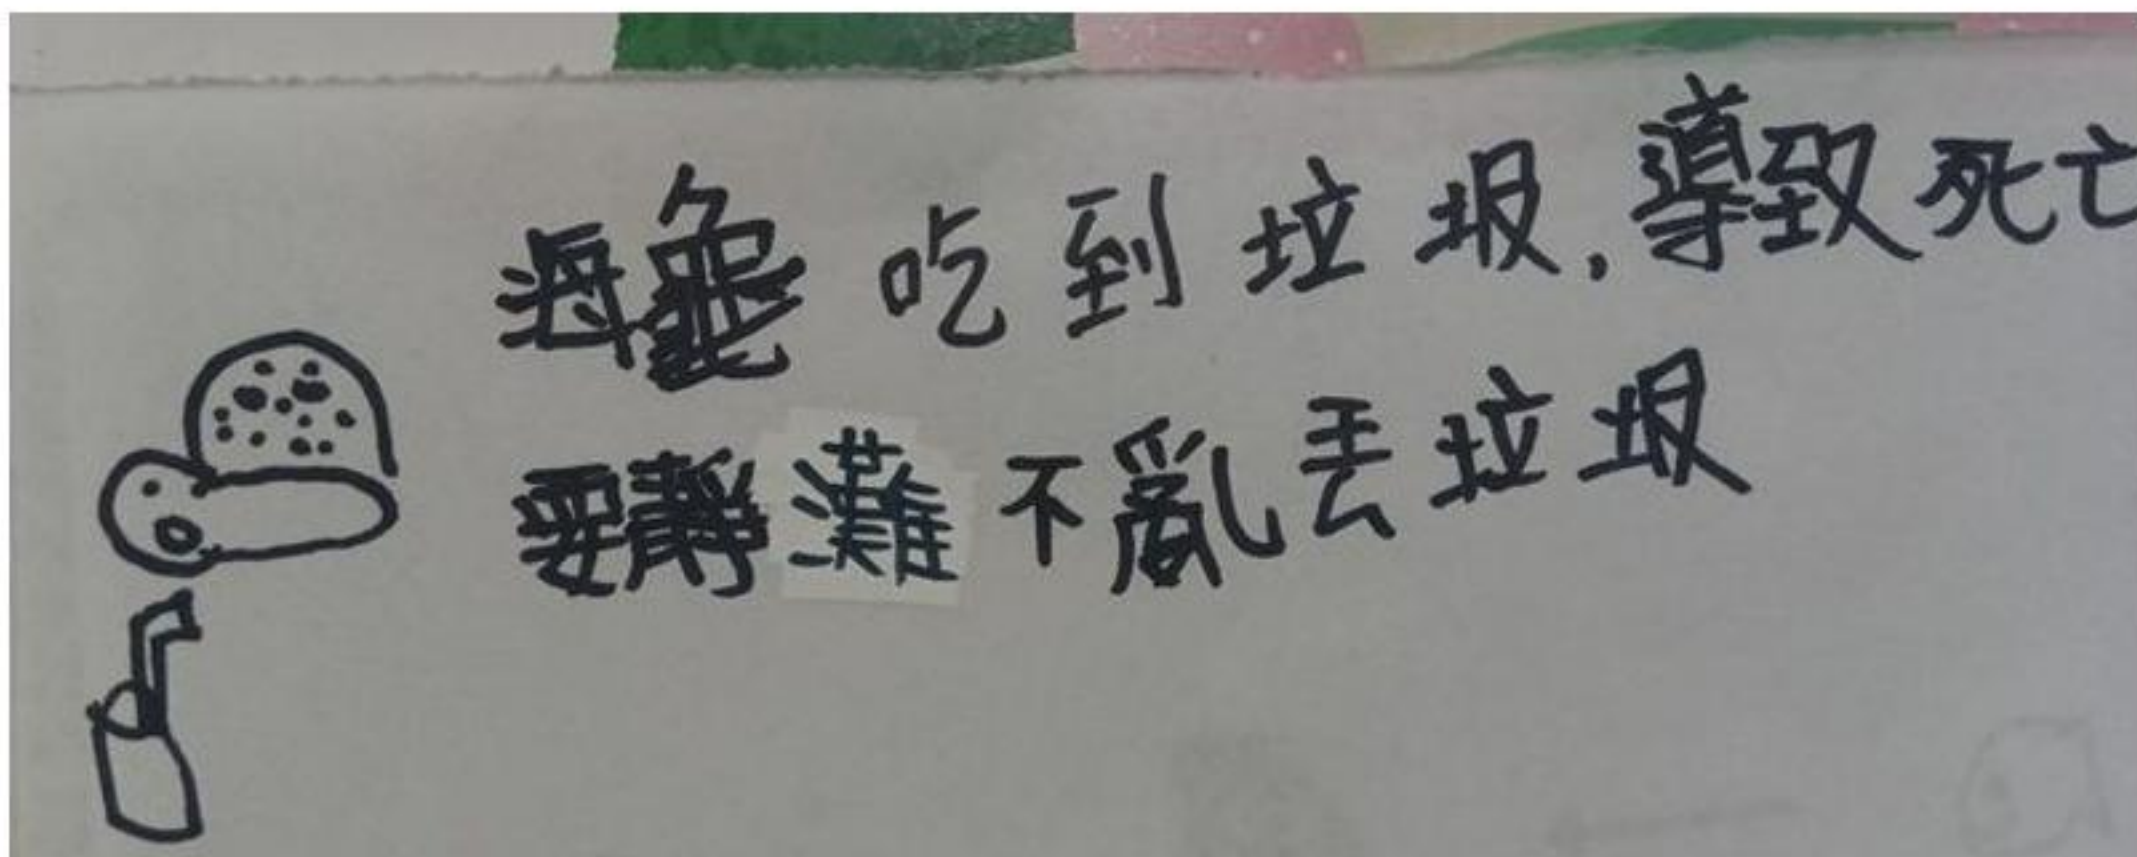 海龜吃到垃圾,導致死亡
要靜灘不亂丟垃圾